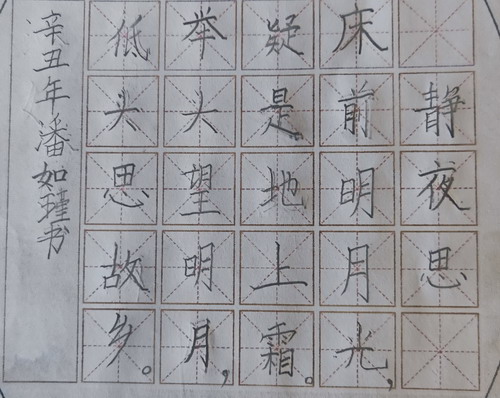 静夜思
床前明月光，
疑是地上霜。
举头望明月，
低头思故乡。
辛丑年潘如瑾书